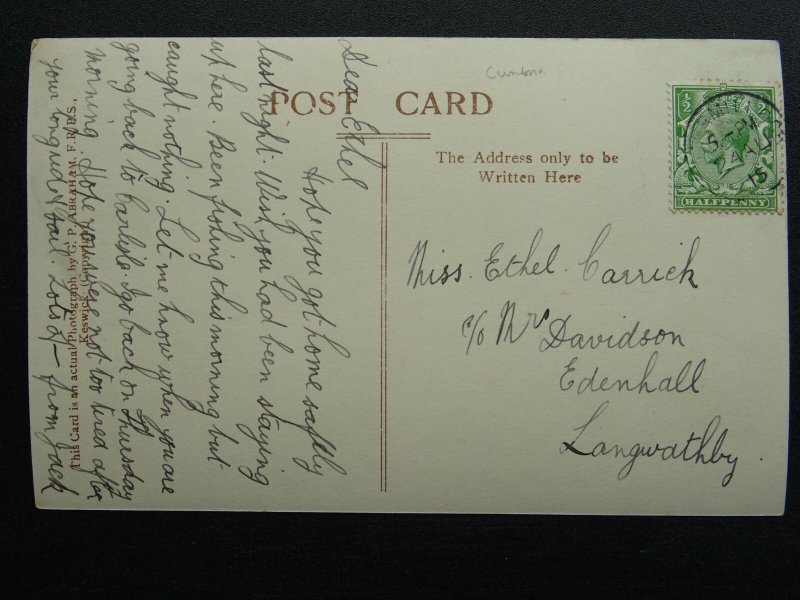 Cumbria
POST CARD
The Address only to be
Written Here
HALFPENNY
15
Miss. Ethel Carrick
c/o Mrs Davidson
Edenhall
Langwathby.
Dear Ethel
Hope you got home saftly
last night. Wish you had been staying
up here. Been fishing this morning but
caught nothing. Let me know when you are
going back to Carlisle. I go back on Thursday
morning. Hope you are not too tired after
your long ride & sail. Lots of — from Jack
This Card is an actual Photograph by G. P. ABRAHAM, F.R.P.S.,
Keswick